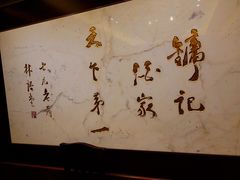 鏞記
酒家
天下第一
林語堂